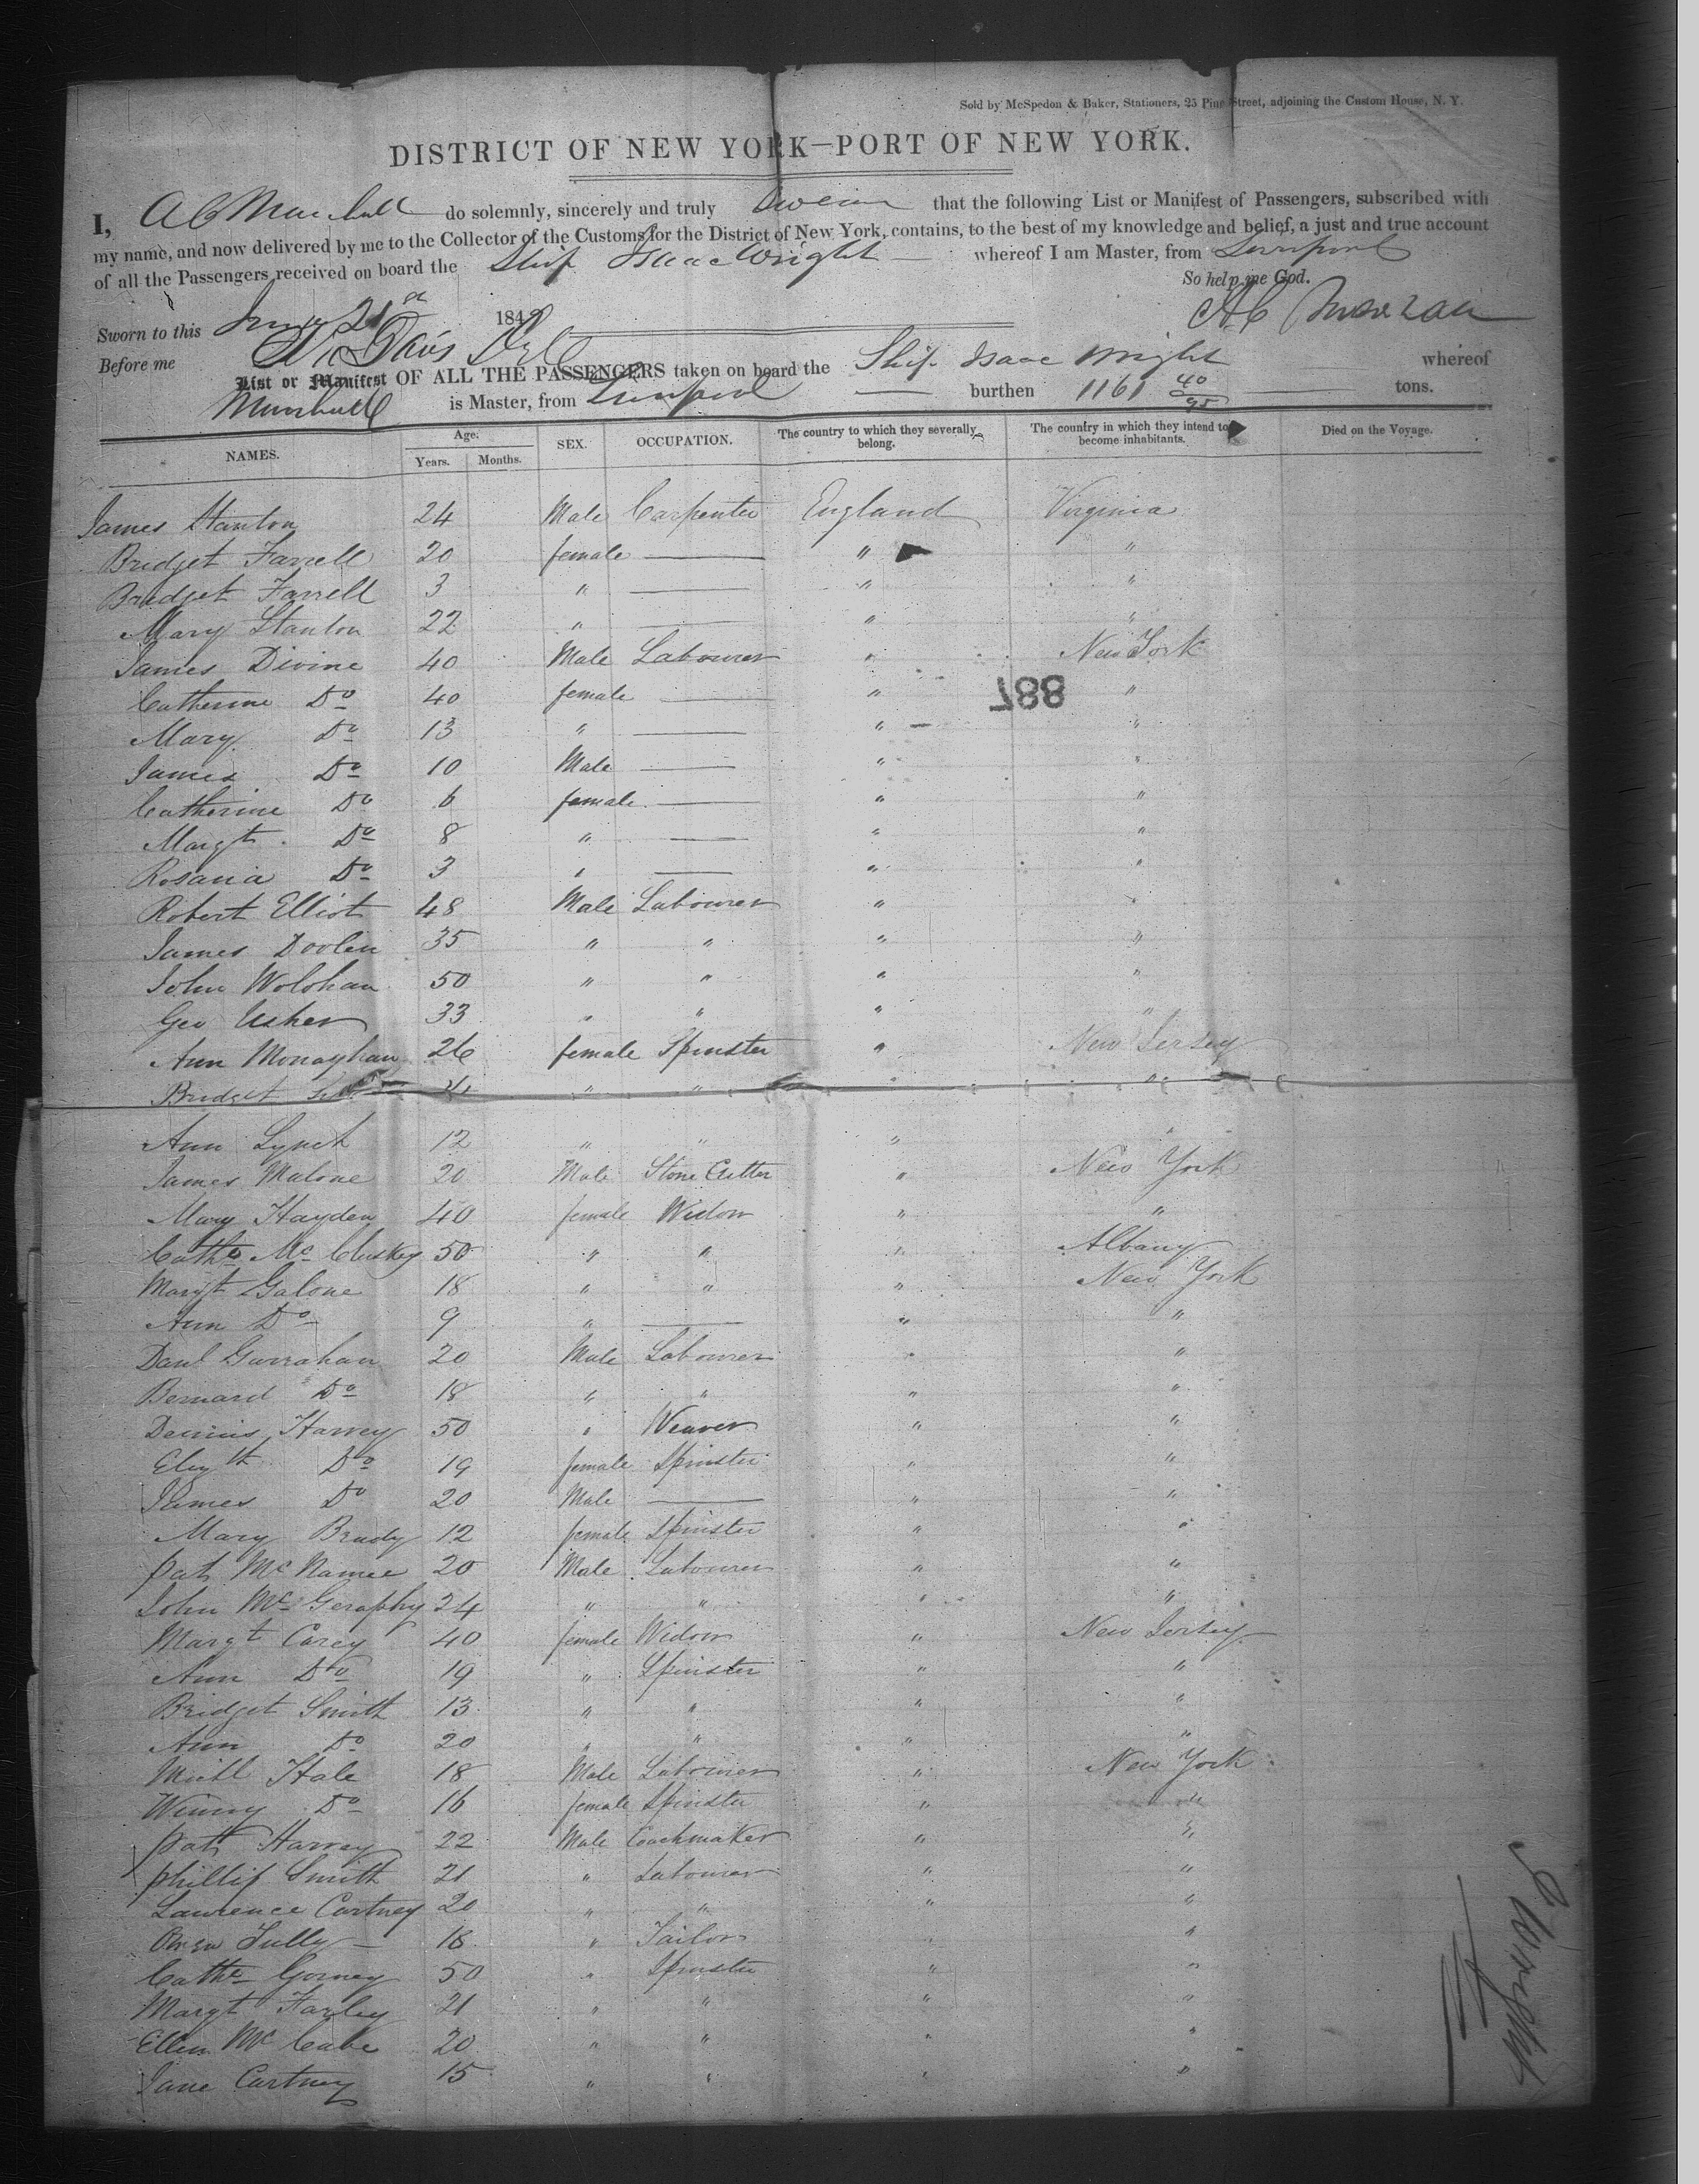 Sold by McSpedon & Baker, Stationers, 25 Pine Street, adjoining the Custom House, N. Y.
DISTRICT OF NEW YORK—PORT OF NEW YORK.
I, A C Marshall do solemnly, sincerely and truly swear that the following List or Manifest of Passengers, subscribed with
my name, and now delivered by me to the Collector of the Customs for the District of New York, contains, to the best of my knowledge and belief, a just and true account
of all the Passengers received on board the Ship Isaac Wright whereof I am Master, from Liverpool
So help me God.
Sworn to this 21st 184
A C Marshall
Before me
List or Manifest OF ALL THE PASSENGERS taken on board the Ship Isaac Wright whereof
Marshall is Master, from Liverpool burthen 1161 40/95 tons.
NAMES. Age. Years. Months. SEX. OCCUPATION. The country to which they severally belong. The country in which they intend to become inhabitants. Died on the Voyage.
James Stanton 24 Male Carpenter England Virginia
Bridget Farrell 20 female — " "
Bridget Farrell 3 " — " "
Mary Stanton 22 " — " "
James Divine 40 Male Labourer " New York
887
Catherine Do 40 female — " "
Mary Do 13 " — " "
James Do 10 Male — " "
Catherine Do 6 female — " "
Margt Do 8 " — " "
Rosania Do 3 " — " "
Robert Elliot 48 Male Labourer " "
James Doolin 35 " " " "
John Wolohan 50 " " " "
Geo Usher 33 " " " "
Ann Monaghan 26 female Spinster " New Jersey
Bridget " " " "
Ann Lynch 12 " " " "
James Malone 20 Male Stone Cutter " New York
Mary Hayden 40 female Widow " "
Cathe Mc Cluskey 50 " " " Albany
Margt Galone 18 " " " New York
Ann Do 9 " — " "
Danl Garrahan 20 Male Labourer " "
Bernard Do 18 " " " "
Dennis Harvey 50 " Weaver " "
Elizth Do 19 female Spinster " "
James Do 20 Male — " "
Mary Brady 12 female Spinster " "
Pat Mc Namee 20 Male Labourer " "
John Mc Geraphy 24 " " " "
Margt Carey 40 female Widow " New Jersey
Ann Do 19 " Spinster " "
Bridget Smith 13 " " " "
Ann Do 20 " " " "
Michl Hale 18 Male Labourer " New York
Winny Do 16 female Spinster " "
Pat Harvey 22 Male Coachmaker " "
Phillip Smith 21 " Labourer " "
Lawrence Cartney 20 " " " "
Owen Tully 18 " Tailor " "
Cathe Gorney 50 " Spinster " "
Margt Farley 21 " " " "
Ellen Mc Cabe 20 " " " "
Jane Cartney 15 " " " "